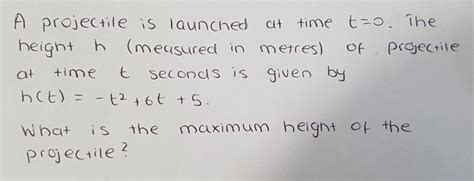 A projectile is launched at time t=0. The
height h (measured in metres) of projectile
at time t seconds is given by
h(t) = -t² + 6t + 5.
What is the maximum height of the
projectile?